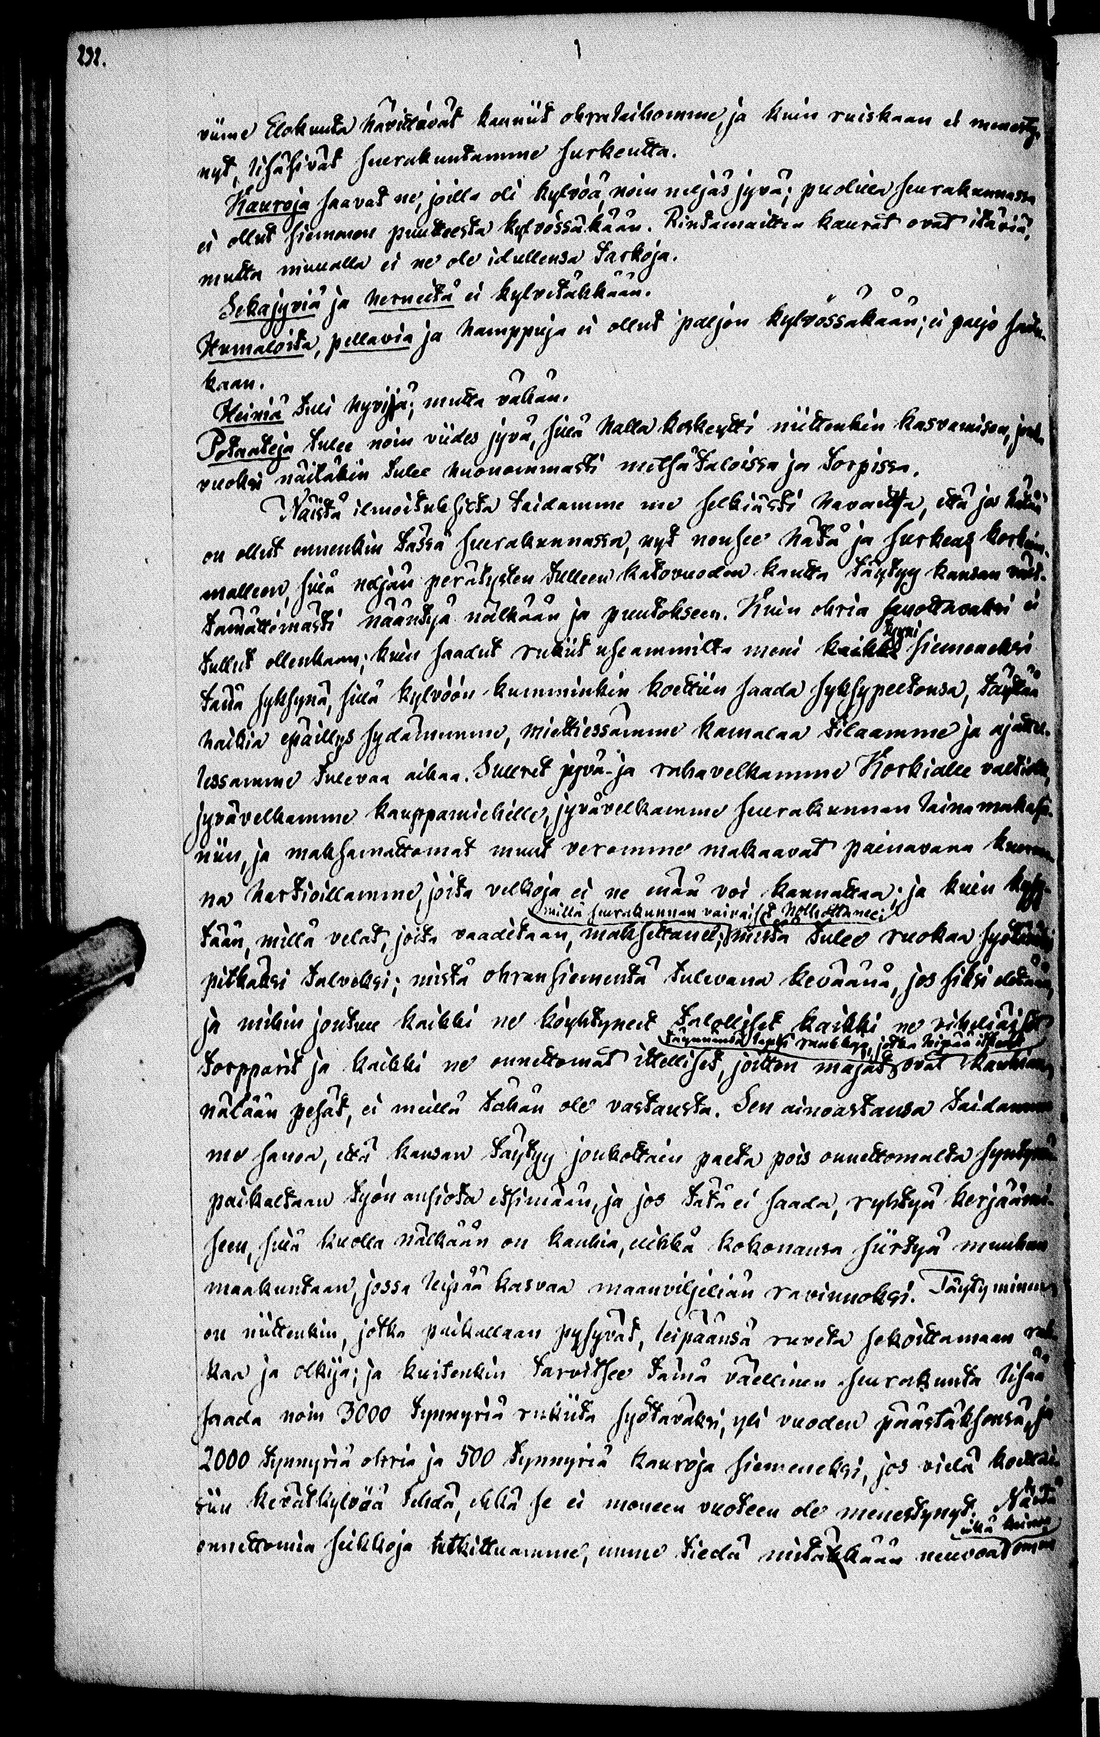 232.
viime Elokuuta hävittävät kauniit ohralaihomme, ja kuin ruiskaan ei menesty-
nyt, lisäsivät seurakuntamme surkeutta.
Kauroja saavat ne, joilla oli kylvöä, noin neljäs jyvä; puolilla seurakunnassa
ei ollut siemenen puutteesta kylvössäkään. Rintamaitten kaurat ovat itäviä,
mutta muualla ei ne ole idullensa tarkoja.
Sekajyviä ja herneitä ei kylvetäkkään.
Humaloita, pellavia ja hamppuja ei ollut paljon kylvössäkään; ei paljo saatu-
kaan.
Heiniä tuli hyvijä; mutta vähän.
Potaateja tulee noin viides jyvä, sillä halla keskeytti niittenkin kasvamisen, jonka
vuoksi näitäkin tulee huonommasti metsätaloissa ja torpissa.
Näistä ilmoituksista taidamme me selkiästi havaita, että jos hätää
on ollut ennenkin tässä seurakunnassa, nyt nousee hätä ja surkeus korkeim-
malleen, sillä neljän perätysten tulleen katovuoden kautta täytyy kansan vält-
tämättömästi nääntyä nälkään ja puutokseen. Kuin ohria syöttäväksi ei
tullut ollenkaan; kuin saadut rukiit useammilta meni kaikki tyyni siemeneksi
tänä syksynä, sillä kylvöön kumminkin koettiin saada syksypeltonsa, täyttää
haikia epäillys sydämmemme, miettiessämme kamalaa tilaamme ja ajatel-
lessamme tulevaa aikaa. Suuret jyvä- ja rahavelkamme Korkialle valtiolle,
jyvävelkamme kauppamiehille, jyvävelkamme seurakunnan lainamakasi-
niin, ja maksamattomat muut veromme makaavat painavana kuorma-
na hartioillamme, joita velkoja ei ne enää voi kannattaa; ja kuin kysy-
millä seurakunnan vaivaiset holhottanee;
tään, millä velat, joita vaaditaan, maksettanee; mistä tulee ruokaa syötäväksi
pitkäksi talveksi; mistä ohransiementä tulevana keväänä, jos siksi eletään,
ja mihin joutuu kaikki ne köyhtyneet talolliset kaikki ne rikeläiset
täynnänsä lapsi raukkoja, jotka leipää itkevät
torpparit ja kaikki ne onnettomat itelliset, joitten majat ovat kauhian
nälään pesät, ei meillä tähän ole vastausta. Sen ainoastansa taidamme
me sanoa, että kansan täytyy joukottain paeta pois onnettomalta syntymä-
paikaltaan työn ansiota etsimään, ja jos tätä ei saada, ryhtyä kerjäämi-
seen, sillä kuolla nälkään on kauhia, eikkä kokonansa siirtyä muuhun
maakuntaan, jossa leipää kasvaa maanviljeliän ravinnoksi. Täytyminen
on niittenkin, jotka paikallaan pysyvät, leipäänsä ruveta sekoittamaan ruk-
kaa ja olkija; ja kuitenkin tarvitsee tämä väellinen seurakunta lisää
saada noin 3000 tynnyriä rukiita syötäväksi, yli vuoden päästäksensä, ja
2000 tynnyriä ohria ja 500 tynnyriä kauroja siemeneksi, jos vielä koettai-
siin kevätkylvöä tehdä, ehkä se ei moneen vuoteen ole menestynyt. Näitä
eikä keinoa
onnettomia seikkoja tutkittuamme, emme tiedä mitäkkään neuvoa omassa